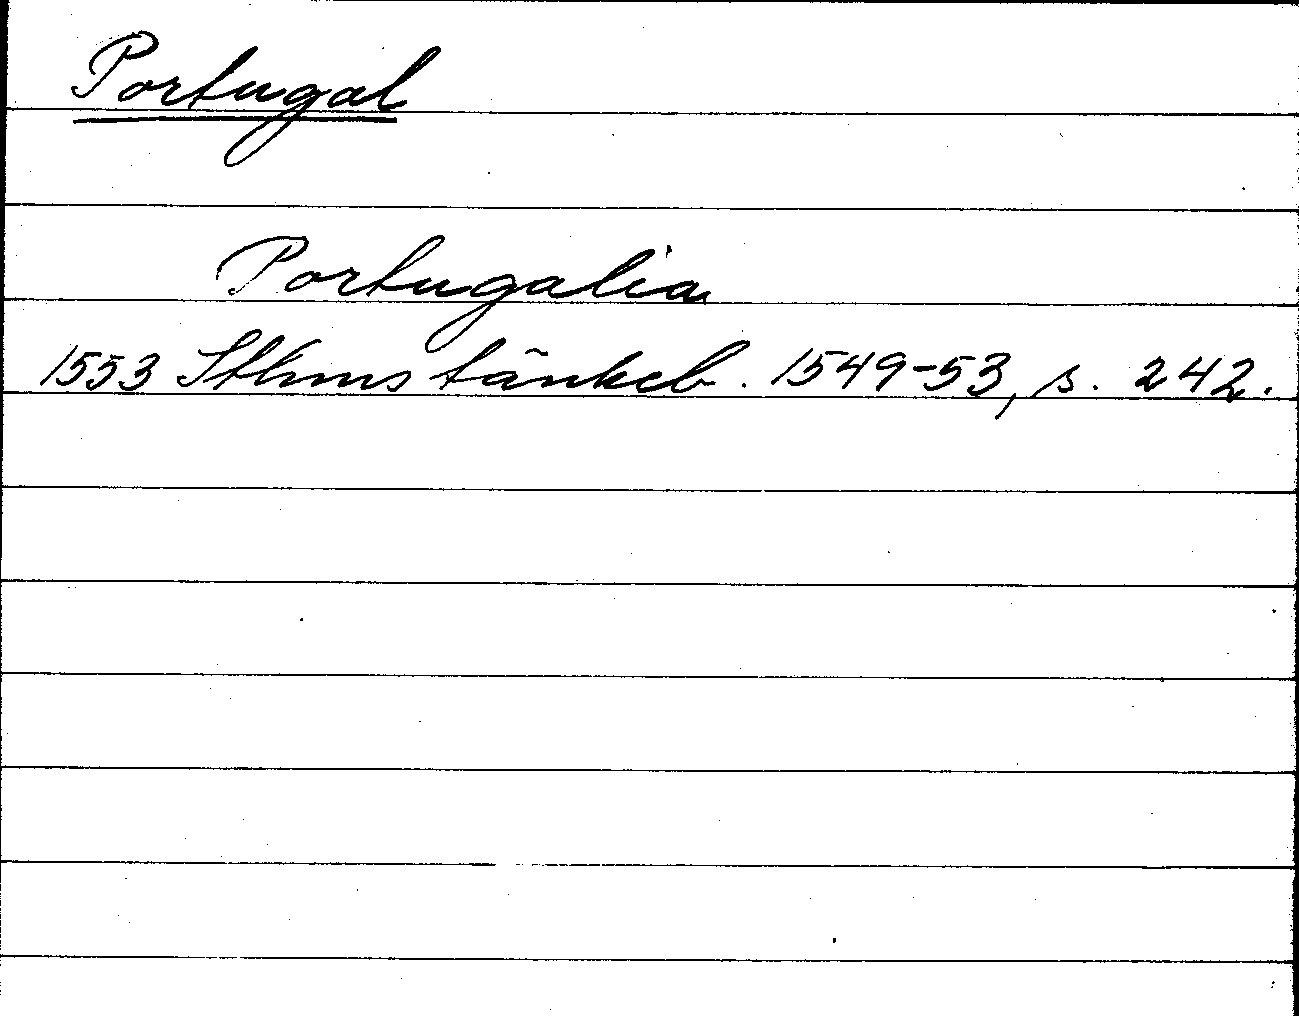 Portugal
Portugalia
1553 Sthms tänkeb. 1549-53, s. 242.